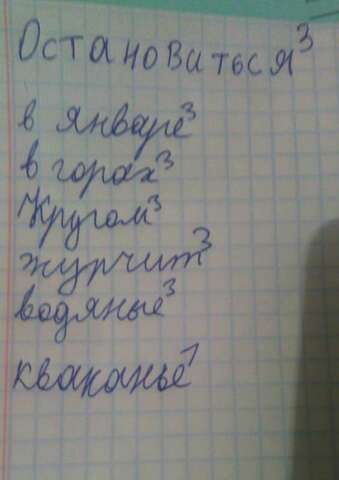 Остановиться³
в январе³
в горах³
Кругом³
журчит³
водяные³
кваканье⁷